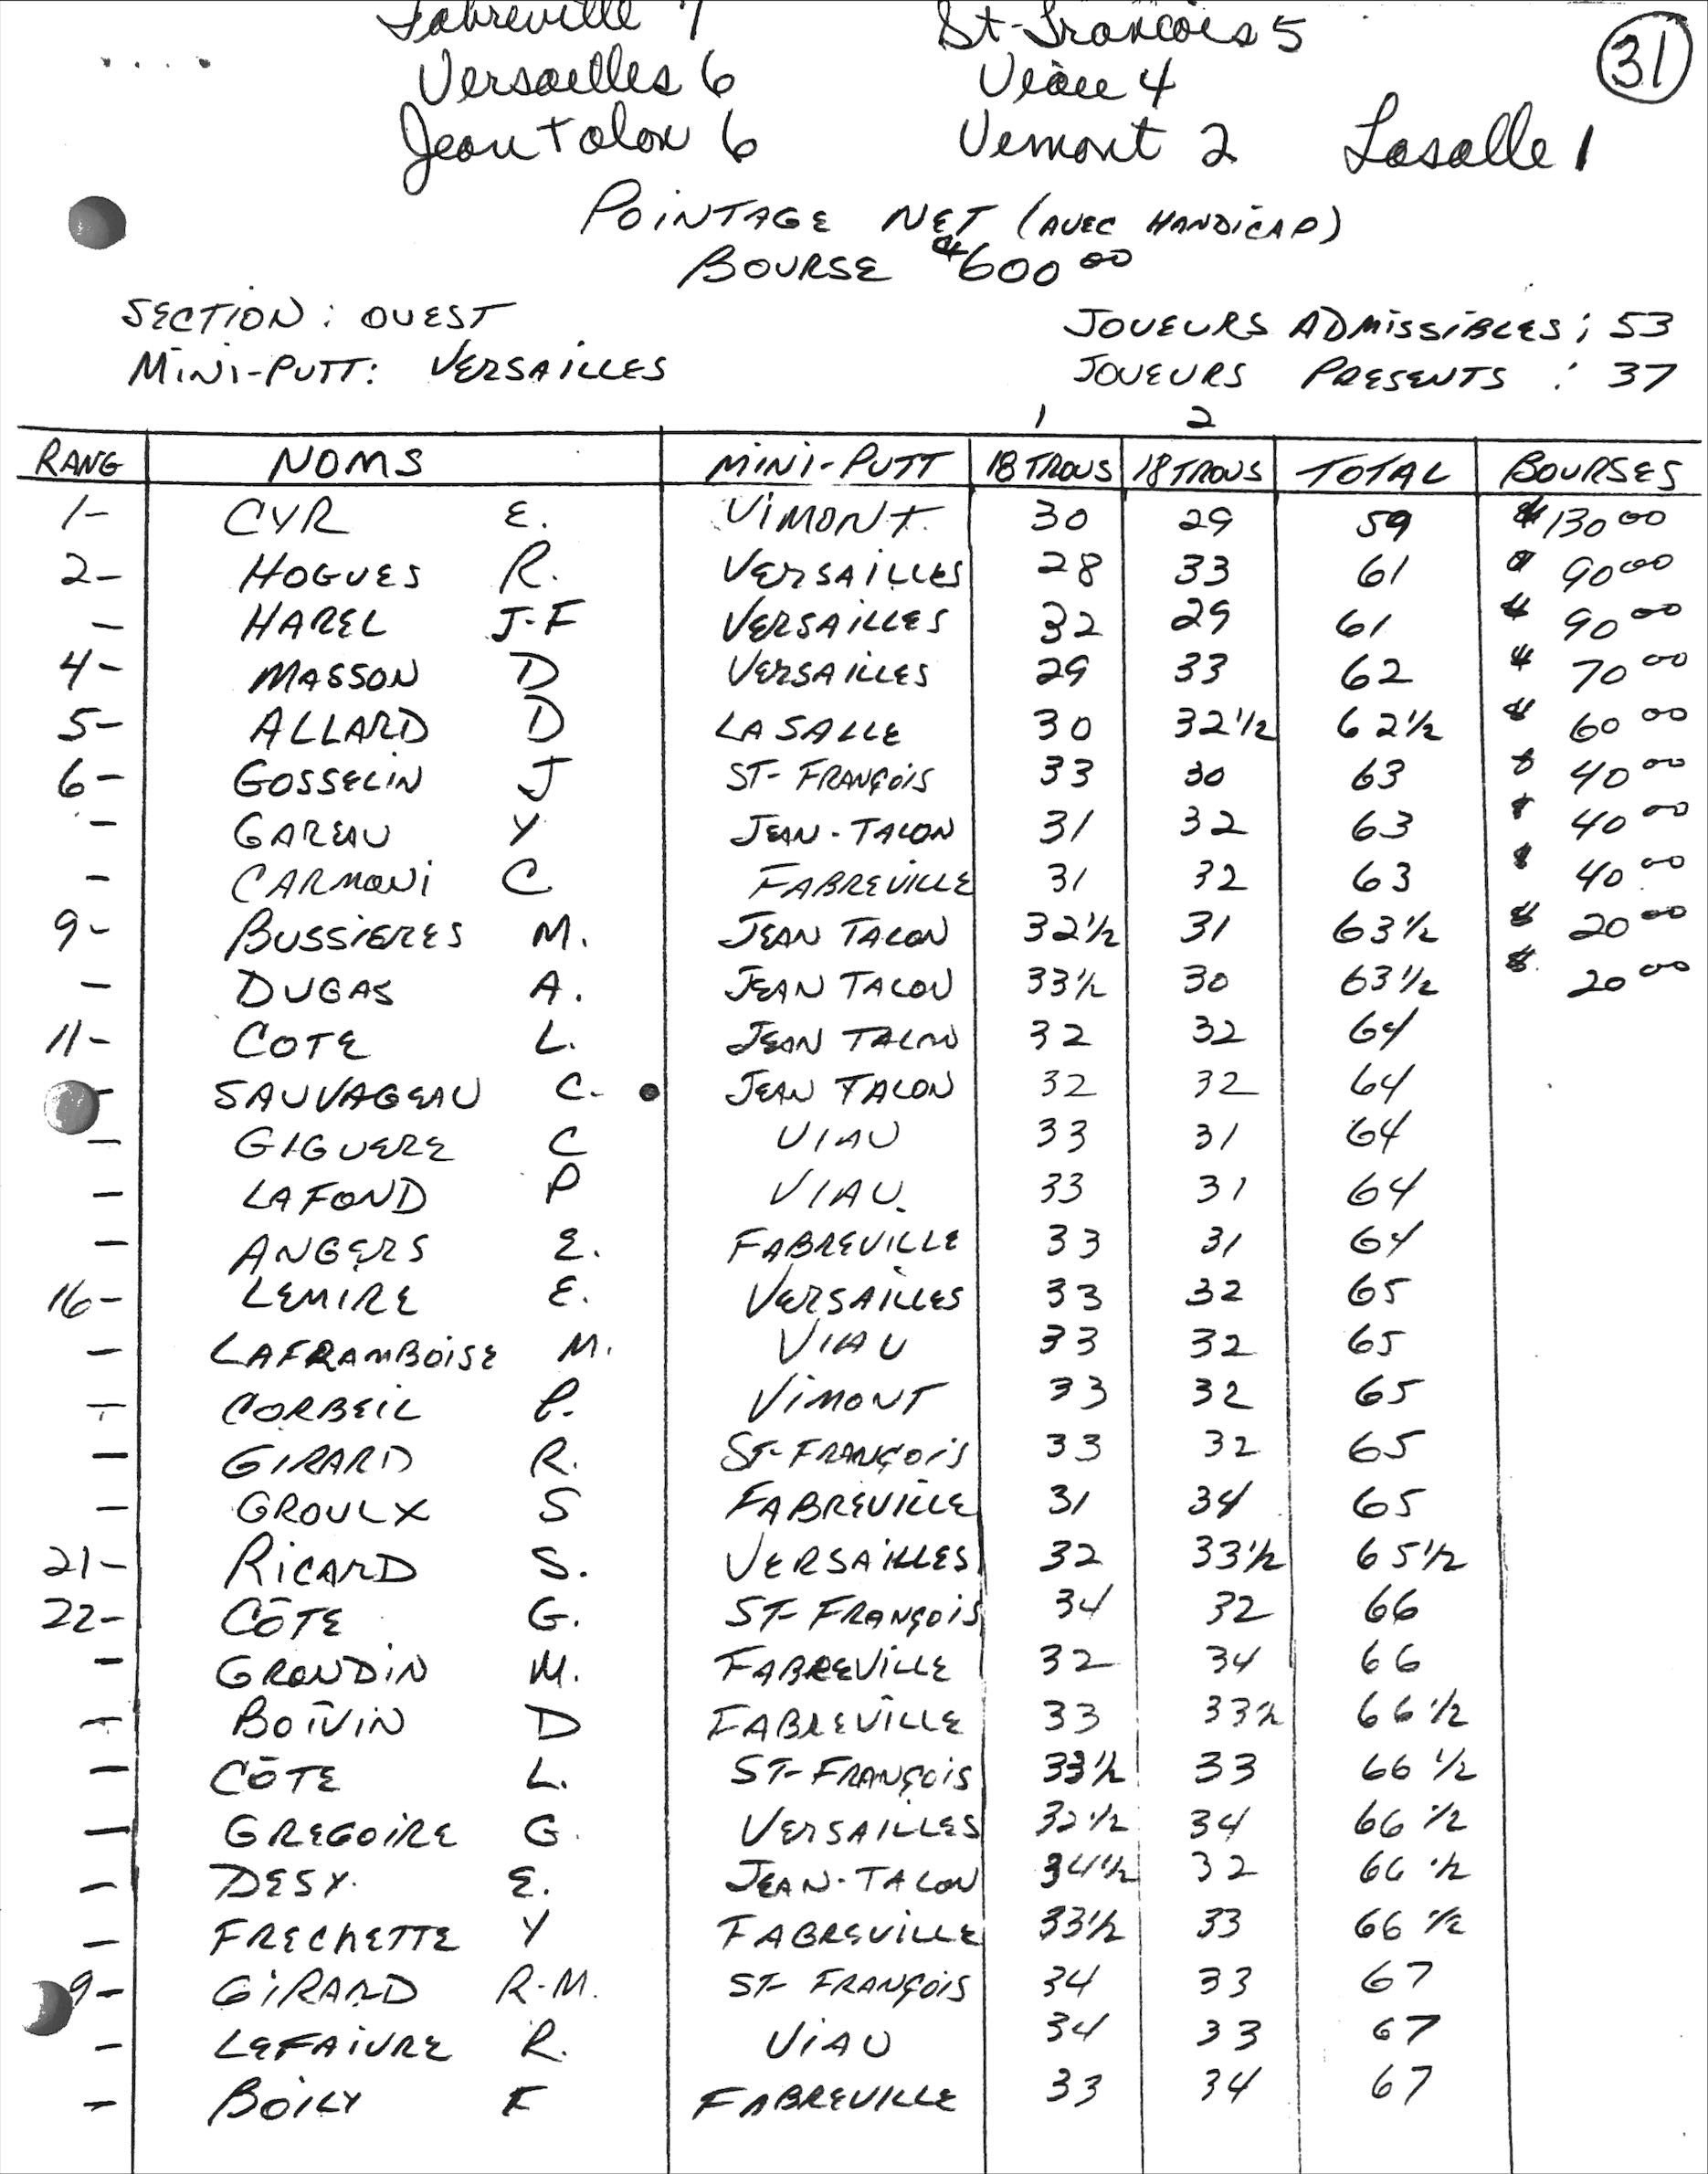 Fabreville 7 St-François 5 31
Versailles 6 Viau 4
Jean Talon 6 Vimont 2 Lasalle 1
POINTAGE NET (AVEC HANDICAP)
BOURSE $600 00
SECTION : OUEST JOUEURS ADMISSIBLES : 53
MINI-PUTT : VERSAILLES JOUEURS PRESENTS : 37
1 2
RANG NOMS MINI-PUTT 18 TROUS 18 TROUS TOTAL BOURSES
1- CYR E. VIMONT 30 29 59 $130 00
2- HOGUES R. VERSAILLES 28 33 61 $ 90 00
- HAREL J-F VERSAILLES 32 29 61 $ 90 00
4- MASSON D VERSAILLES 29 33 62 $ 70 00
5- ALLARD D LASALLE 30 32 1/2 62 1/2 $ 60 00
6- GOSSELIN J ST-FRANÇOIS 33 30 63 $ 40 00
- GAREAU Y JEAN-TALON 31 32 63 $ 40 00
- CARMONI C FABREVILLE 31 32 63 $ 40 00
9- BUSSIERES M. JEAN TALON 32 1/2 31 63 1/2 $ 20 00
- DUGAS A. JEAN TALON 33 1/2 30 63 1/2 $ 20 00
11- COTE L. JEAN TALON 32 32 64
- SAUVAGEAU C. JEAN TALON 32 32 64
- GIGUERE C VIAU 33 31 64
- LAFOND P VIAU 33 31 64
- ANGERS E. FABREVILLE 33 31 64
16- LEMIRE E. VERSAILLES 33 32 65
- LAFRAMBOISE M. VIAU 33 32 65
- CORBEIL P. VIMONT 33 32 65
- GIRARD R. ST-FRANÇOIS 33 32 65
- GROULX S FABREVILLE 31 34 65
21- RICARD S. VERSAILLES 32 33 1/2 65 1/2
22- CÔTE G. ST-FRANÇOIS 34 32 66
- GRONDIN M. FABREVILLE 32 34 66
- BOIVIN D FABREVILLE 33 33 1/2 66 1/2
- CÔTE L. ST-FRANÇOIS 33 1/2 33 66 1/2
- GREGOIRE G. VERSAILLES 32 1/2 34 66 1/2
- DESY E. JEAN-TALON 34 1/2 32 66 1/2
- FRECHETTE Y FABREVILLE 33 1/2 33 66 1/2
9- GIRARD R-M. ST-FRANÇOIS 34 33 67
- LEFAIVRE R. VIAU 34 33 67
- BOILY F FABREVILLE 33 34 67